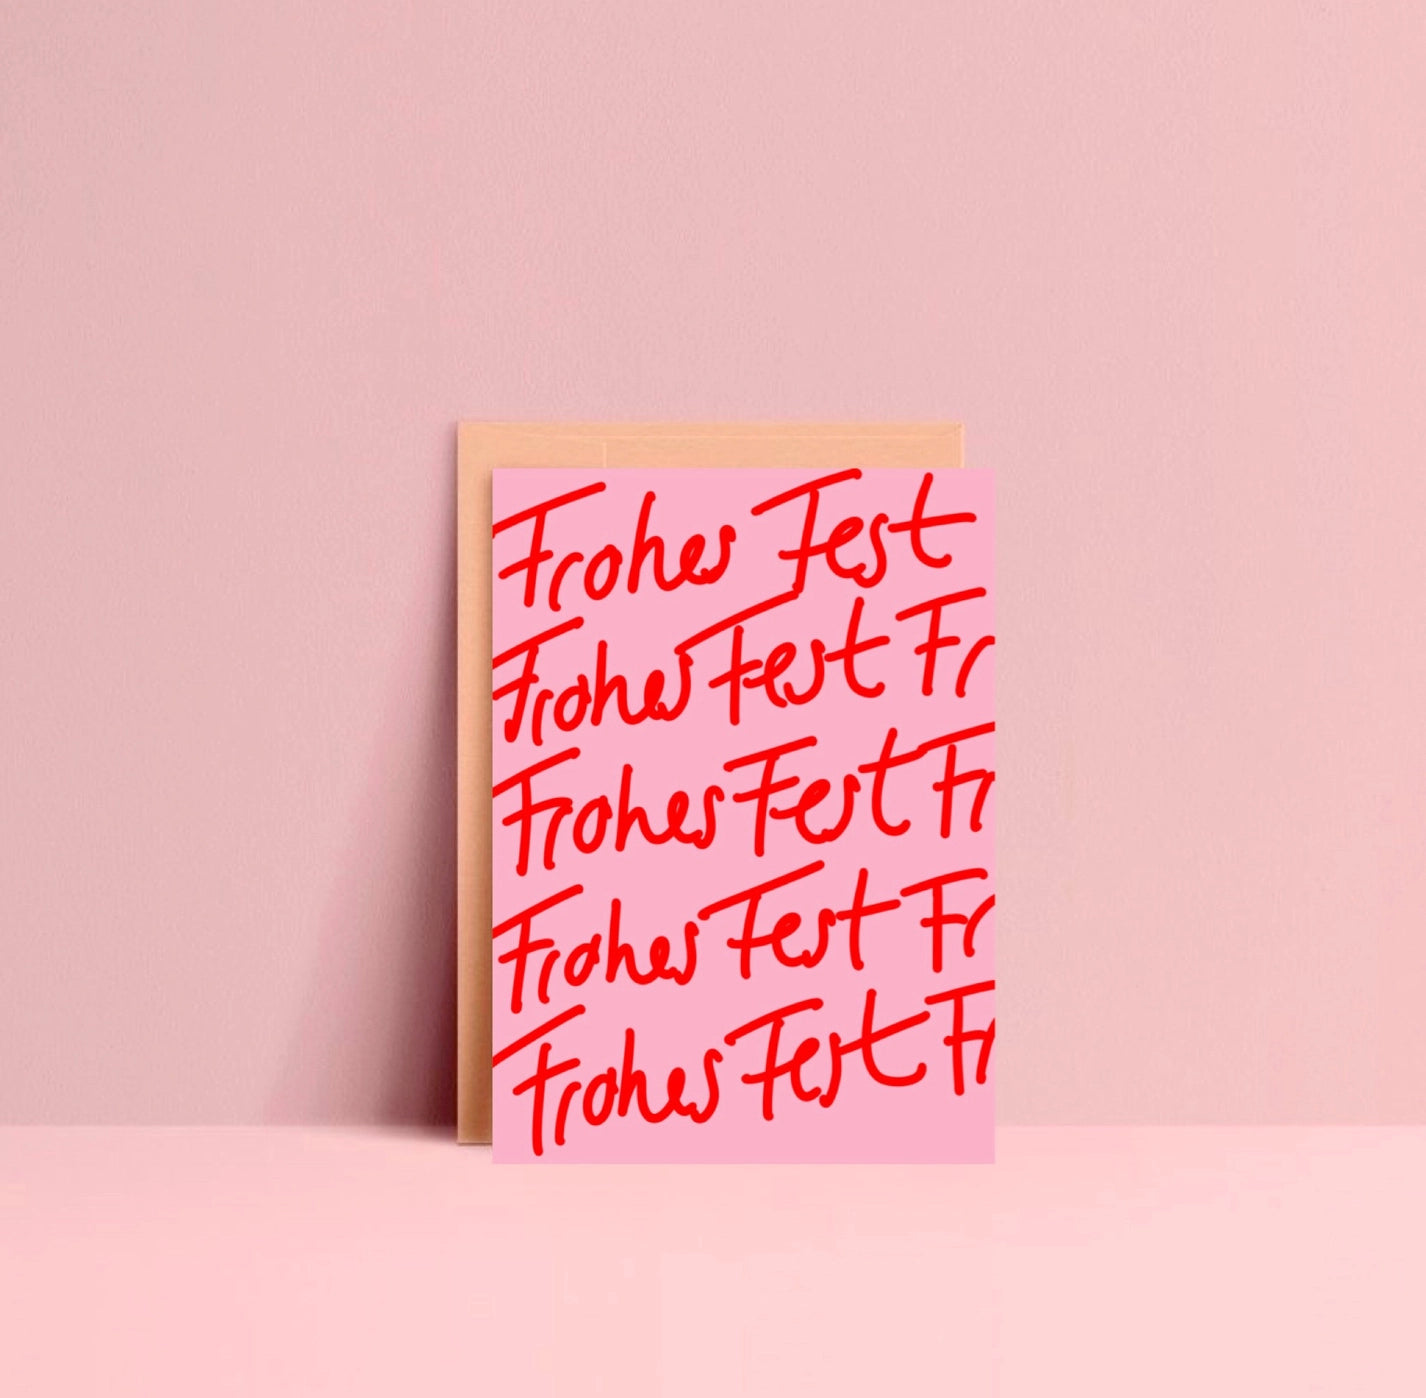 Frohes Fest
Frohes Fest Fr
Frohes Fest Fr
Frohes Fest Fr
Frohes Fest Fr